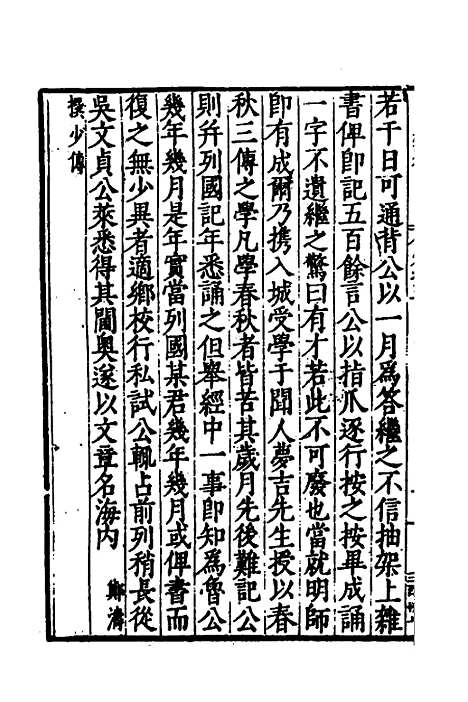 若干日可通背公以一月爲答繼之不信抽架上雜
書俾即記五百餘言公以指爪逐行按之按畢成誦
一字不遺繼之驚曰有才若此不可廢也當就明師
即有成爾乃携入城受學于聞人夢吉先生授以春
秋三傳之學凡學春秋者皆苦其歲月先後難記公
則并列國記年悉誦之但舉經中一事即知爲魯公
幾年幾月是年實當列國某君幾年幾月或俾書而
復之無少異者適鄉校行私試公輒占前列稍長從
吳文貞公萊悉得其閫奥遂以文章名海内 鄭濤
撰少傳